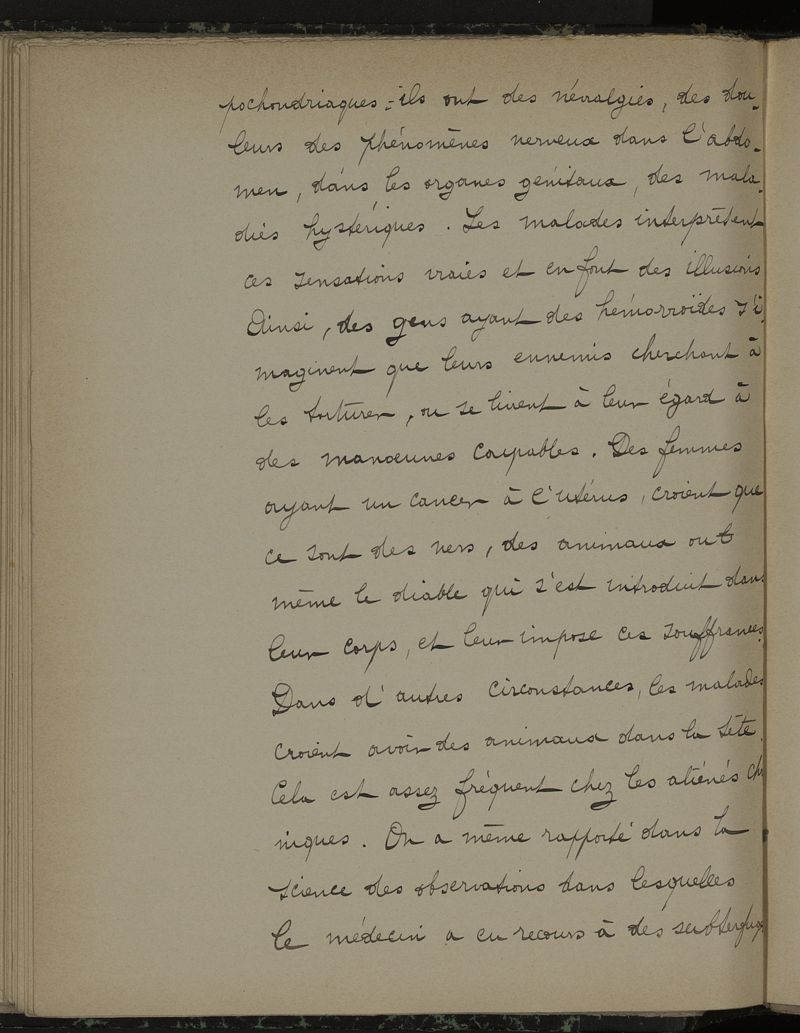 pochondriaques ; ils ont des névralgies, des dou-
leurs des phénomènes nerveux dans l'abdo-
men, dans les organes génitaux, des mala-
dies hystériques. Les malades interprètent
ces sensations vraies et en font des illusions
Ainsi, des gens ayant des hémorroïdes s'i-
maginent que leurs ennemis cherchent à
les torturer, ou se livrent à leur égard à
des manœuvres coupables. Des femmes
ayant un cancer à l'utérus, croient que
ce sont des vers, des animaux ou
même le diable qui s'est introduit dans
leur corps, et leur impose ces souffrances.
Dans d'autres circonstances, les malades
croient avoir des animaux dans la tête.
Cela est assez fréquent chez les aliénés ch
niques. On a même rapporté dans la
science des observations dans lesquelles
le médecin a eu recours à des subterfuges